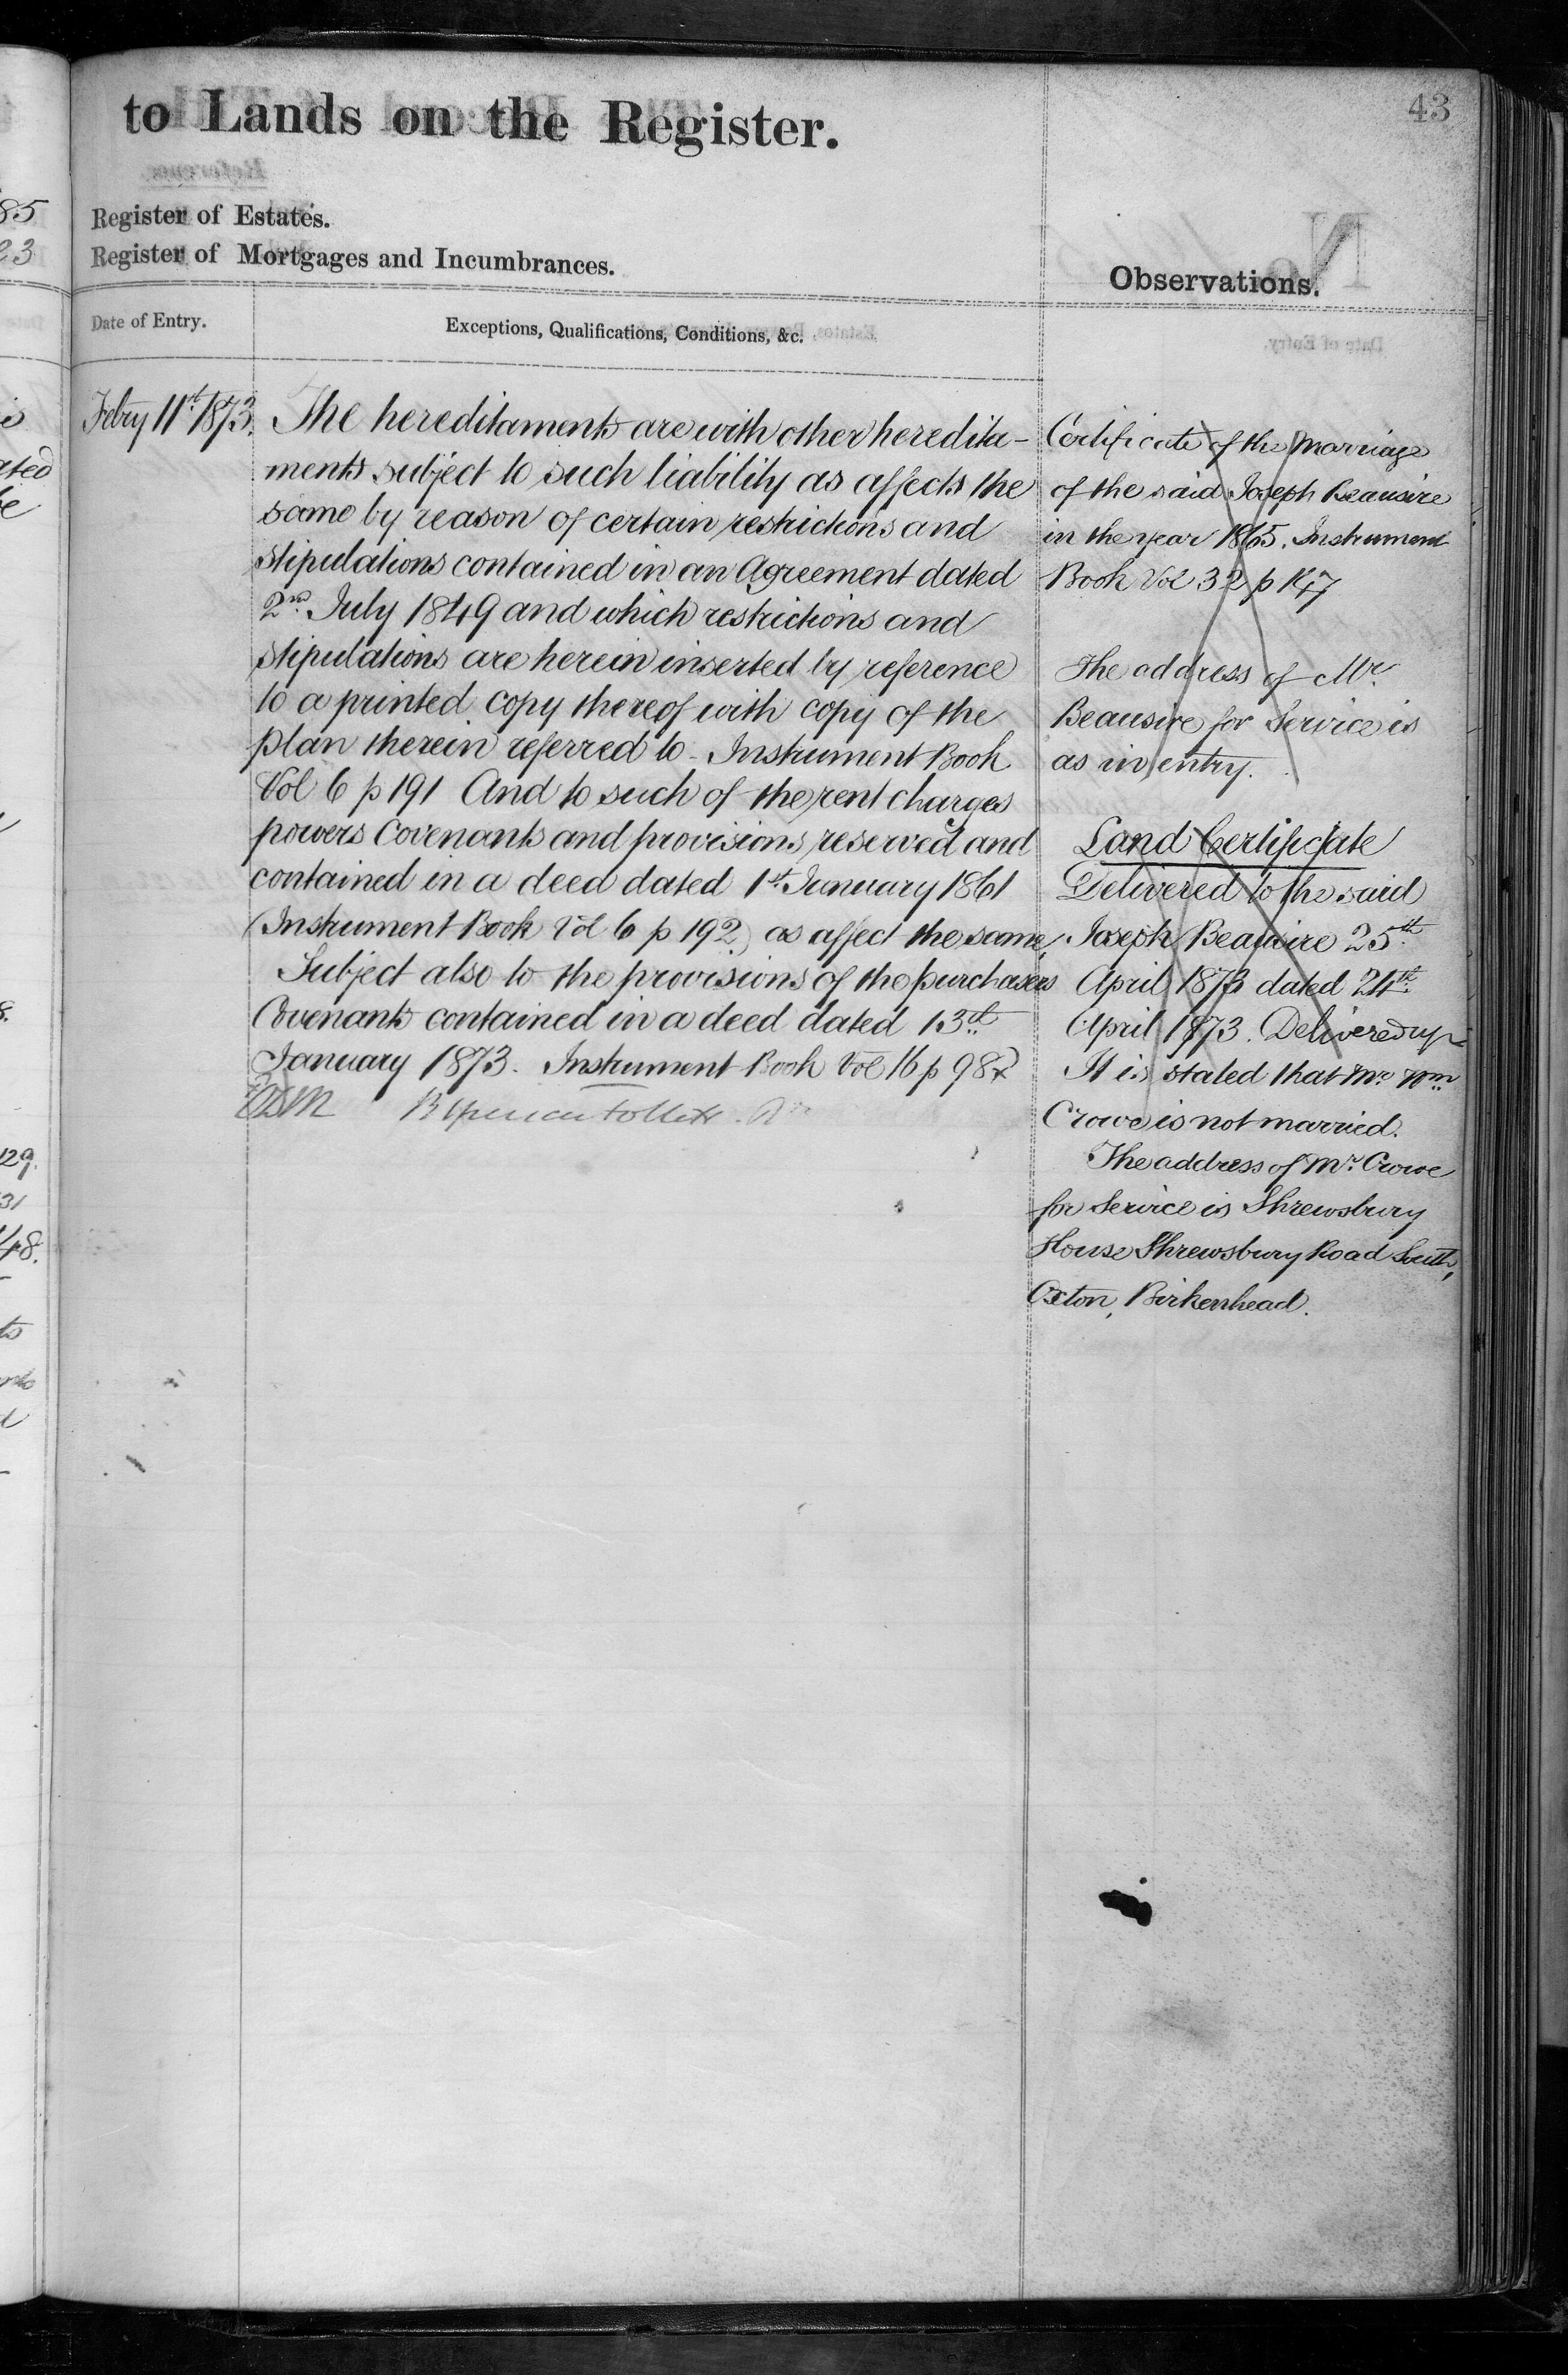 43
to Lands on the Register.
Register of Estates.
Register of Mortgages and Incumbrances.
Observations.
Date of Entry.
Exceptions, Qualifications, Conditions, &c.
Febry 11th 1873.
The hereditaments are with other heredita-
ments subject to such liability as affects the
same by reason of certain restrictions and
stipulations contained in an Agreement dated
2nd July 1849 and which restrictions and
stipulations are herein inserted by reference
to a printed copy thereof with copy of the
plan therein referred to - Instrument Book
Vol 6 p 191 And to such of the rent charges
powers Covenants and provisions reserved and
contained in a deed dated 1st January 1861
(Instrument Book Vol 6 p 192) as affect the same,
Subject also to the provisions of the purchasers
Covenants contained in a deed dated 13th
January 1873. Instrument Book Vol 16 p 98
Certificate of the Marriage
of the said Joseph Beausire
in the year 1865. Instrument
Book Vol 32 p
The address of Mr.
Beausire for Service is
as in entry.
Land Certificate
Delivered to the said
Joseph Beausire 25th
April 1873 dated 24th
April 1873. Delivered up
It is stated that Mr Wm
Crowe is not married.
The address of Mr. Crowe
for Service is Shrewsbury
House Shrewsbury Road South,
Oxton, Birkenhead.
85
23
ated
be
8.
129.
31
48.
ts